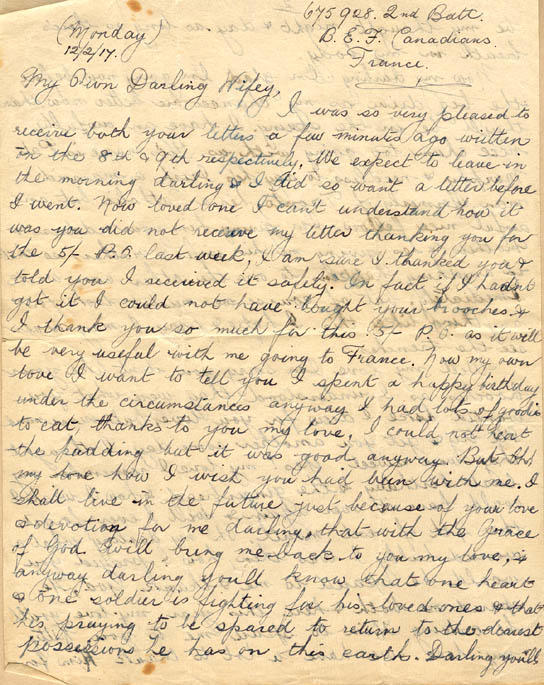 675928. 2nd Batt.
(Monday) B. E. F. Canadians.
12/2/17. France.
My Own Darling Wifey,
I was so very pleased to
receive both your letters a few minutes ago written
on the 8th & 9th respectively. We expect to leave in
the morning darling & I did so want a letter before
I went. Now loved one I can't understand how it
was you did not receive my letter thanking you for
the 5/- P.O. last week, I am sure I thanked you &
told you I received it safely. In fact if I hadn't
got it I could not have bought your brooches. &
I thank you so much for this 5/- P.O. as it will
be very useful with me going to France. Now my own
love I want to tell you I spent a happy birthday
under the circumstances anyway I had lots of goodies
to eat, thanks to you my love, I could not heat
the pudding but it was good anyway. But Oh!
my love how I wish you had been with me. I
shall live in the future just because of your love
& devotion for me darling, that with the Grace
of God will bring me back to you my love, &
anyway darling you'll know that one heart
& one soldier is fighting for his loved ones & that
his praying to be spared to return to the dearest
possessions he has on this earth. Darling you'll